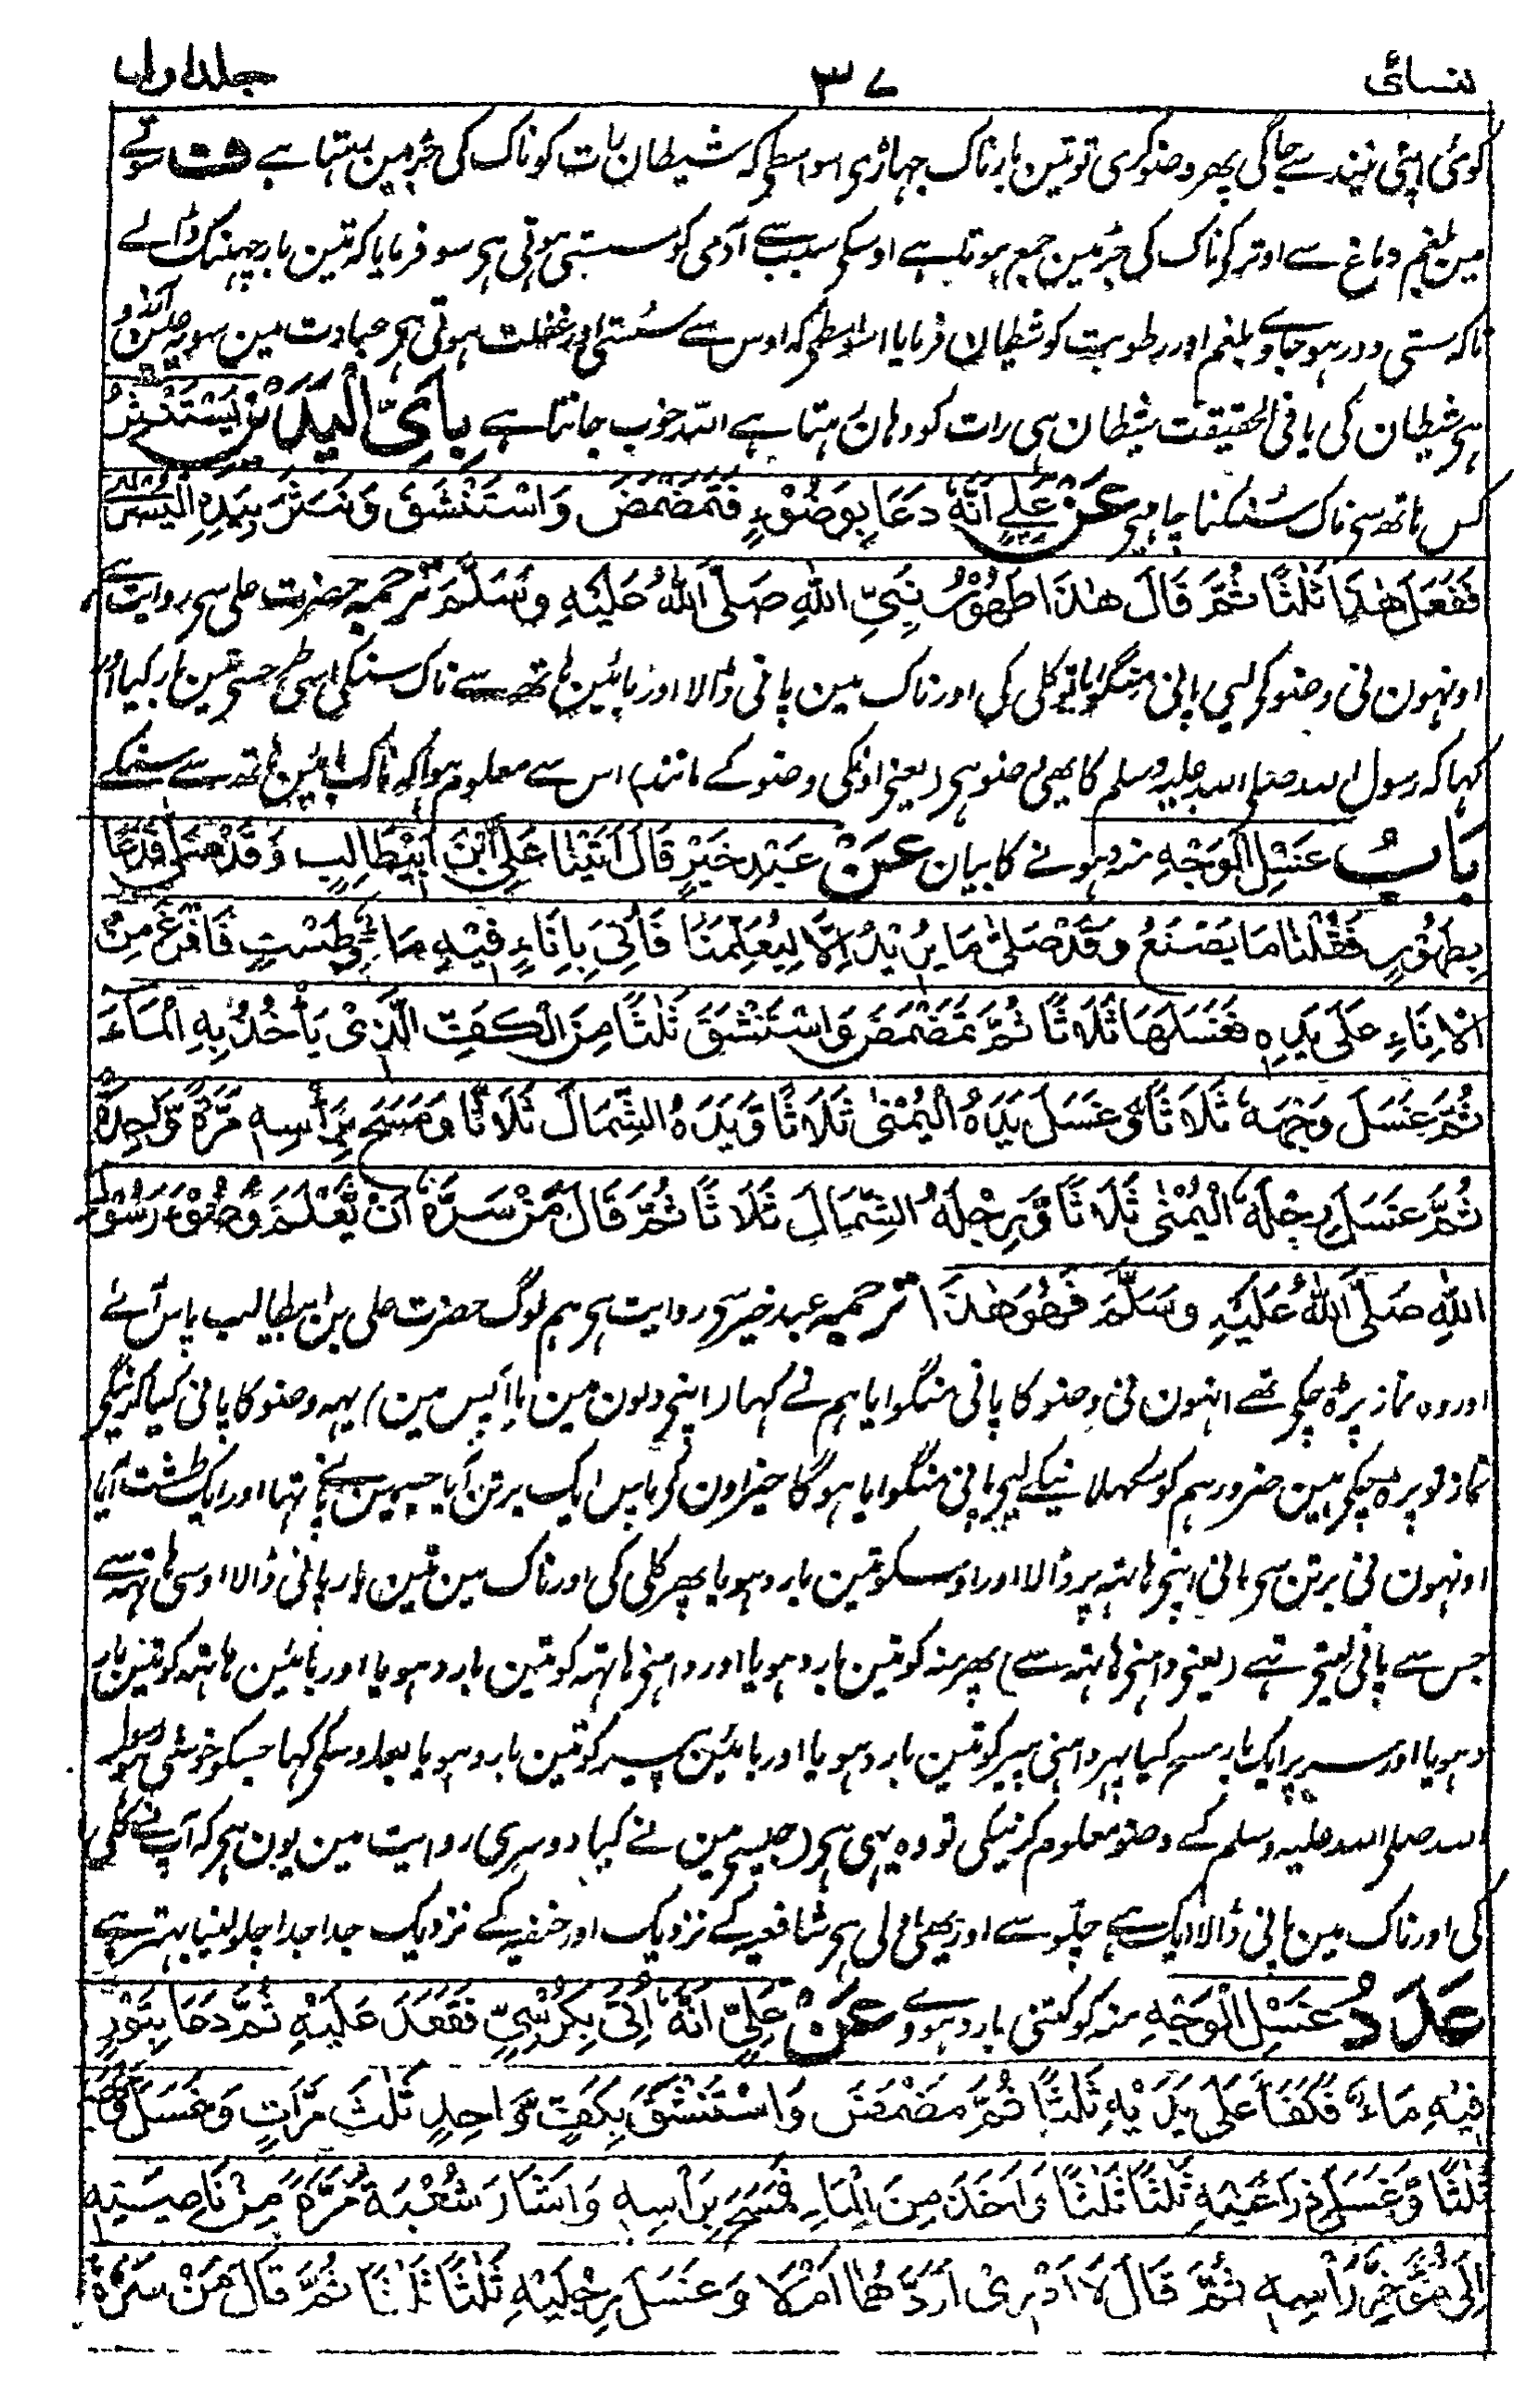 نسائی ۳۷ جلد اول
کوئی اپنی نیند سے جاگی پھر وضو کری تو تین بار ناک جہاڑی اسواسطی کہ شیطان رات کو ناک کی جڑ مین رہتا ہے ف سوتے
مین بلغم دماغ سے اوتر کر ناک کی جڑ مین جمع ہوتا ہے اوسکی سبب سے آدمی کو سستی ہوتی ہی سو فرمایا کہ تین بار چہینک ڈالے
تاکہ سستی دور ہو جاوے بلغم اور رطوبت کو شیطان فرمایا اسواسطی کہ اوس سے سستی اور غفلت ہوتی ہی عبادت مین سو یہ
ہی شیطان کی یا فی الحقیقت شیطان ہی رات کو وہان رہتا ہے اللہ خوب جانتا ہے بِاَيِّ الْيَدَيْنِ يَسْتَنْثِرُ
کس ہاتھ سی ناک سنکنا چاہئی عَنْ عَلِيٍّ اَنَّهٗ دَعَا بِوَضُوْءٍ فَتَمَضْمَضَ وَاسْتَنْشَقَ وَنَثَرَ بِيَدِهِ الْيُسْرٰى
فَفَعَلَ هٰذَا ثَلٰثًا ثُمَّ قَالَ هٰذَا طَهُوْرُ نَبِيِّ اللهِ صَلَّى اللهُ عَلَيْهِ وَسَلَّمَ ترجمہ حضرت علی سی روایت ہے
اونہون نی وضو کی لیی پانی منگوایا تو کلی کی اور ناک مین پانی ڈالا اور بائین ہاتھ سے ناک سنکی اسی طرح تین بار کیا اور
کہا کہ رسول اللہ صلی اللہ علیہ وسلم کا یھی وضو ہی (یعنی اونکی وضو کے مانند) اس سے معلوم ہوا کہ ناک بائین ہاتھ سے سنکے
بَابُ غَسْلِ الْوَجْهِ منہ دہونے کا بیان عَنْ عَبْدِ خَيْرٍ قَالَ اَتَيْنَا عَلِيَّ ابْنَ اَبِيْطَالِبٍ وَقَدْ صَلّٰى فَدَعَا
بِطَهُوْرٍ فَقُلْنَا مَا يَصْنَعُ وَقَدْ صَلّٰى مَا يُرِيْدُ اِلَّا لِيُعَلِّمَنَا فَاُتِيَ بِاِنَاءٍ فِيْهِ مَاءٌ وَطَسْتٍ فَاَفْرَغَ مِنَ
الْاِنَاءِ عَلٰى يَدِهٖ فَغَسَلَهَا ثَلَاثًا ثُمَّ تَمَضْمَضَ وَاسْتَنْشَقَ ثَلٰثًا مِنَ الْكَفِّ الَّذِيْ يَاْخُذُ بِهِ الْمَاءَ
ثُمَّ غَسَلَ وَجْهَهٗ ثَلَاثًا وَّغَسَلَ يَدَهُ الْيُمْنٰى ثَلَاثًا وَّيَدَهُ الشِّمَالَ ثَلَاثًا وَمَسَحَ بِرَاْسِهٖ مَرَّةً وَّاحِدَةً
ثُمَّ غَسَلَ رِجْلَهُ الْيُمْنٰى ثَلَاثًا وَّرِجْلَهُ الشِّمَالَ ثَلَاثًا ثُمَّ قَالَ مَنْ سَرَّهٗ اَنْ يَّعْلَمَ وُضُوْءَ رَسُوْلِ
اللهِ صَلَّى اللهُ عَلَيْهِ وَسَلَّمَ فَهُوَ هٰذَا ترجمہ عبد خیر سی روایت ہی ہم لوگ حضرت علی بن ابیطالب پاس آئے
اور وہ نماز پڑہ چکی تھے انہون نی وضو کا پانی منگوایا ہم نے کہا (اپنی دلون مین یا آپس مین) یہہ وضو کا پانی کیا کرینگی
نماز تو پڑہ چکی ہین ضرور ہم کو سکہلانیکے لیی پانی منگوایا ہوگا خیر اون کی پاس ایک برتن آیا جسمین پانی تہا اور ایک طشت آیا
اونہون نی برتن سی پانی اپنی ہاتہہ پر ڈالا اور اوسکو تین بار دہویا پھر کلی کی اور ناک مین تین بار پانی ڈالا اوسی ہاتہہ سے
جس سے پانی لیتی تہے (یعنی داہنی ہاتہہ سے) پھر منہ کو تین بار دہویا اور داہنی ہاتہہ کو تین بار دہویا اور بائین ہاتہہ کو تین بار
دہویا اور سر پر ایک بار مسح کیا پہر داہنی پیر کو تین بار دہویا اور بائین پیر کو تین بار دہویا بعد اوسکی کہا جسکو خوشی ہو رسول
اللہ صلی اللہ علیہ وسلم کے وضو معلوم کرنیکی تو وہ یہی ہی (جیسی مین نے کیا) دوسری روایت مین یون ہی کہ آپ نے کلی
کی اور ناک مین پانی ڈالا ایک ہی چلو سے اور یھی اولی ہی شافعیہ کے نزدیک اور حنفیہ کے نزدیک جدا جدا چلو لینا بہتر ہے
عَدَدُ غَسْلِ الْوَجْهِ منہ کو کتنی بار دہووے عَنْ عَلِيٍّ اَنَّهٗ اُتِيَ بِكُرْسِيٍّ فَقَعَدَ عَلَيْهِ ثُمَّ دَعَا بِتَوْرٍ
فِيْهِ مَاءٌ فَكَفَاَ عَلٰى يَدَيْهِ ثَلٰثًا ثُمَّ مَضْمَضَ وَاسْتَنْشَقَ بِكَفٍّ وَّاحِدٍ ثَلٰثَ مَرَّاتٍ وَغَسَلَ وَجْهَهٗ
ثَلٰثًا وَّغَسَلَ ذِرَاعَيْهِ ثَلٰثًا ثَلٰثًا وَاَخَذَ مِنَ الْمَاءِ فَمَسَحَ بِرَاْسِهٖ وَاَشَارَ شُعْبَةُ مَرَّةً مِنْ نَاصِيَتِهٖ
اِلٰى مُؤَخَّرِ رَاْسِهٖ ثُمَّ قَالَ لَا اَدْرِيْ اَرَدَّهُمَا اَمْ لَا وَغَسَلَ رِجْلَيْهِ ثَلٰثًا ثَلٰثًا ثُمَّ قَالَ مَنْ سَرَّهٗ